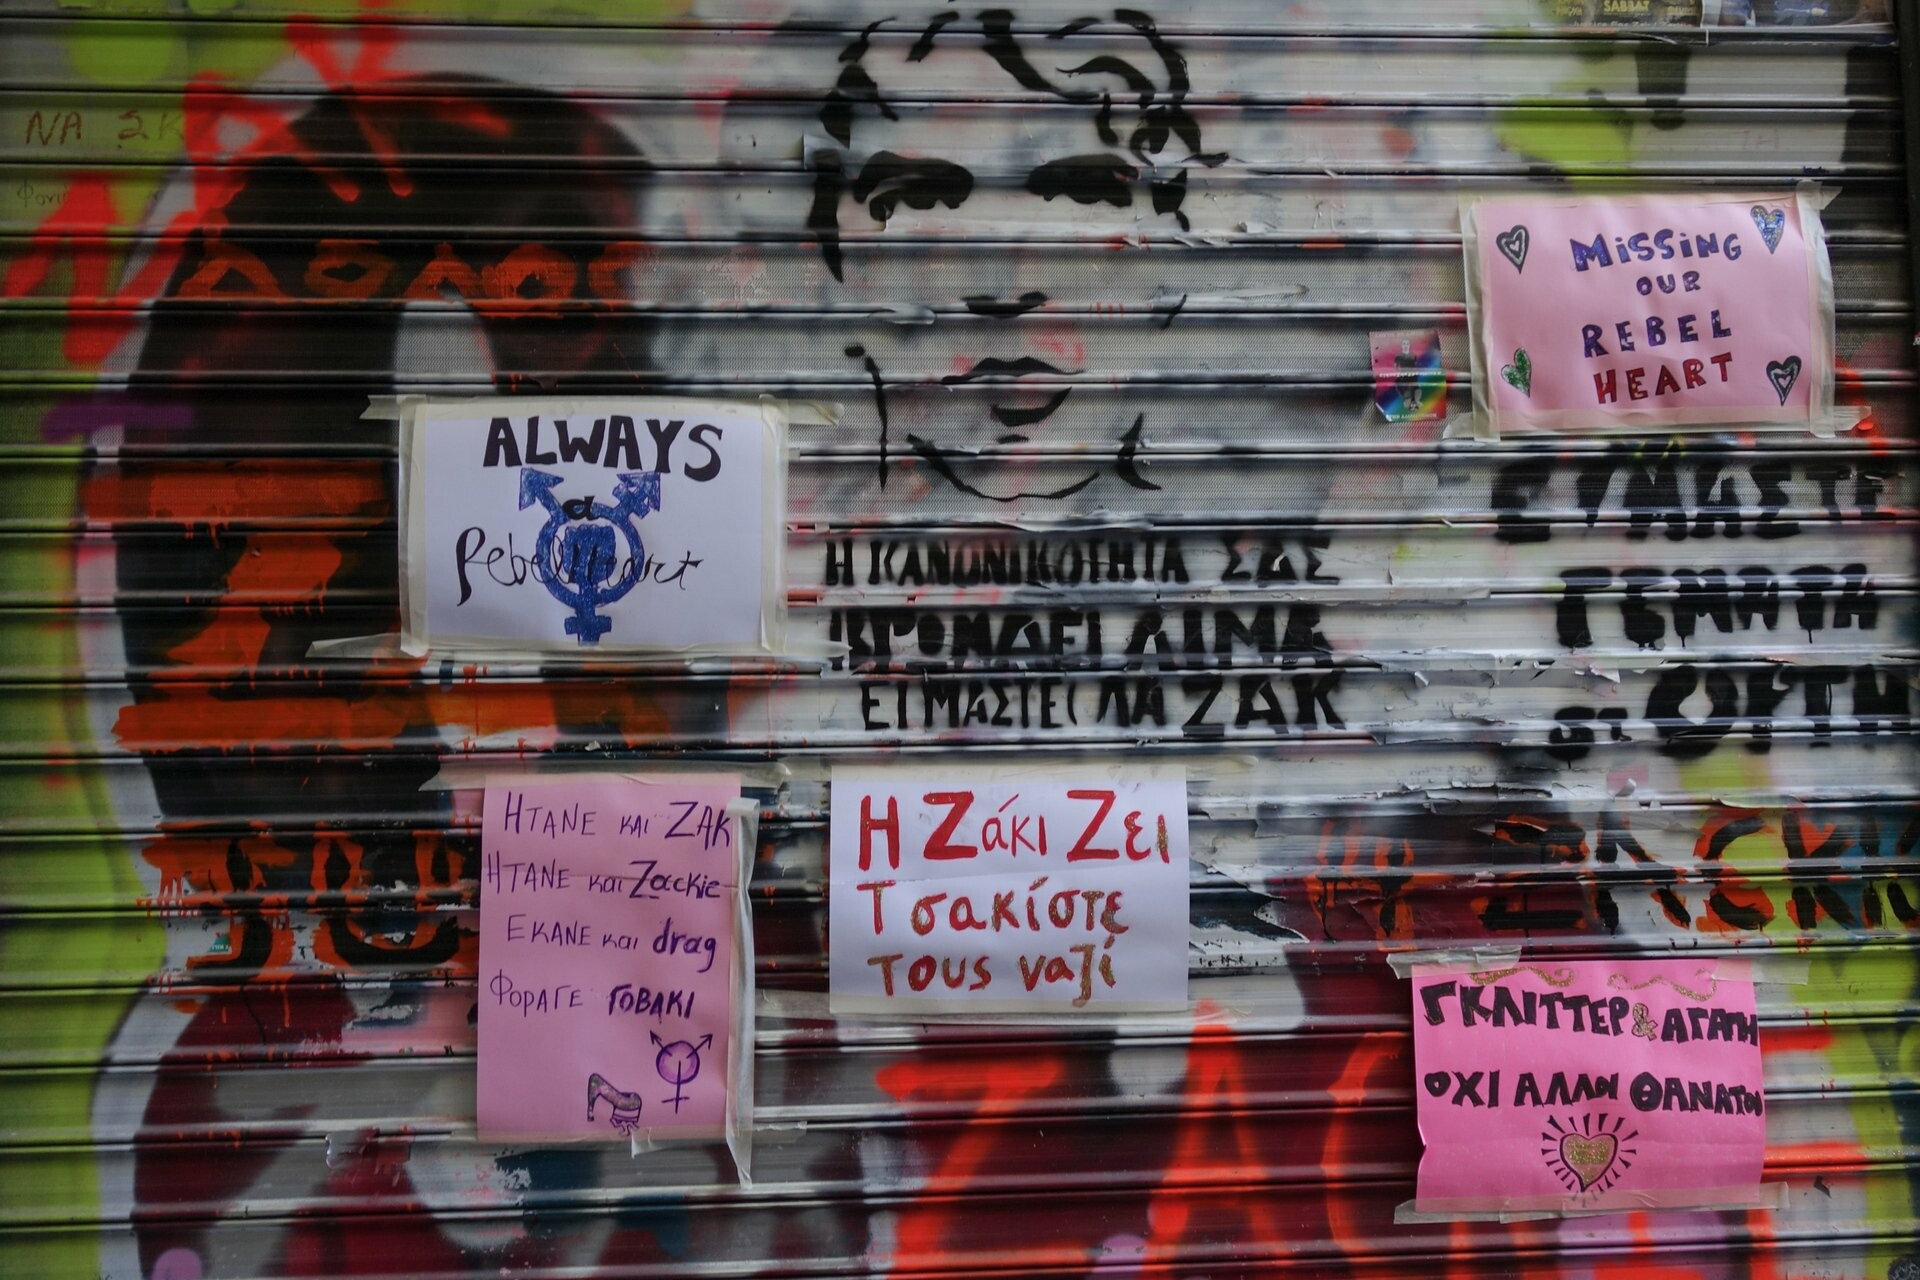 SABBAT
ΝΑ ΣΚ
MiSSiNG
OUR
REBEL
HEART
ALWAYS
a
RebelHeart
Η ΚΑΝΟΝΙΚΟΤΗΤΑ ΣΑΣ
ΒΡΩΜΑΕΙ ΑΙΜΑ
ΕΙΜΑΣΤΕ(ΛΑ ΖΑΚ
ΕΙΜΑΣΤΕ
ΓΕΜΑΤΑ
ΟΡΓΗ
ΗΤΑΝΕ και ΖΑΚ
ΗΤΑΝΕ και Zackie
ΕΚΑΝΕ και drag
ΦΟΡΑΓΕ ΓΟΒΑΚΙ
Η Ζάκι Ζει
Τσακίστε
τους ναζί
ΓΚΛΙΤΤΕΡ & ΑΓΑΠΗ
ΟΧΙ ΑΛΛΟΙ ΘΑΝΑΤΟΙ
ZACKIE